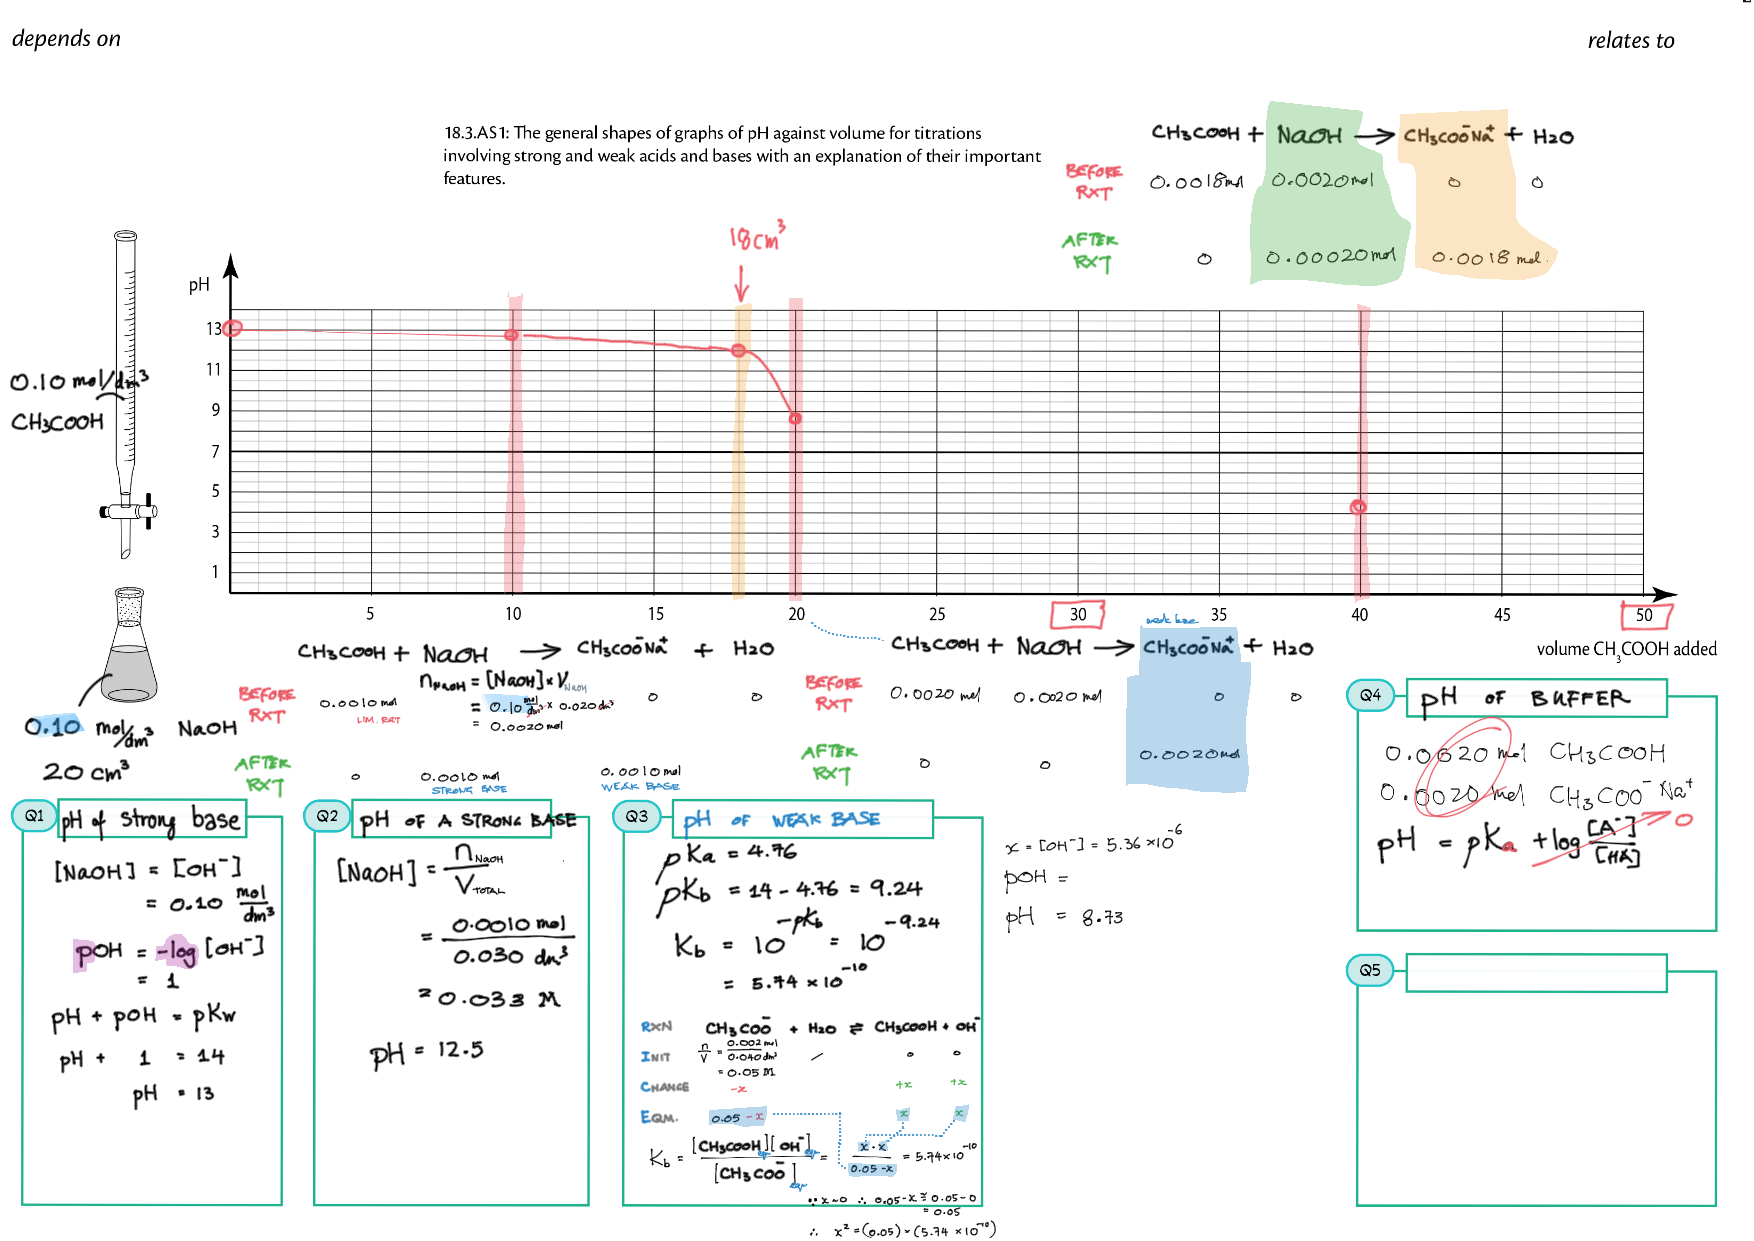 depends on
relates to
18.3.AS1: The general shapes of graphs of pH against volume for titrations
involving strong and weak acids and bases with an explanation of their important
features.
CH3COOH + NaOH → CH3COO⁻Na⁺ + H2O
BEFORE RXT 0.0018mol 0.0020mol 0 0
AFTER RXT 0 0.00020mol 0.0018 mol.
18cm³
pH
13
11
9
7
5
3
1
5 10 15 20 25 30 35 40 45 50
volume CH₃COOH added
0.10 mol/dm³
CH3COOH
0.10 mol/dm³ NaOH
20 cm³
CH3COOH + NaOH → CH3COO⁻Na⁺ + H2O
nNaOH = [NaOH] × VNaOH
BEFORE RXT 0.0010 mol = 0.10 mol/dm³ × 0.020 dm³ 0 0
LIM. RXT = 0.0020 mol
AFTER RXT 0 0.0010 mol 0.0010 mol
STRONG BASE WEAK BASE
weak base
CH3COOH + NaOH → CH3COO⁻Na⁺ + H2O
BEFORE RXT 0.0020 mol 0.0020 mol 0 0
AFTER RXT 0 0 0.0020mol
Q1 pH of strong base
[NaOH] = [OH⁻]
= 0.10 mol/dm³
pOH = -log [OH⁻]
= 1
pH + pOH = pKw
pH + 1 = 14
pH = 13
Q2 pH OF A STRONG BASE
[NaOH] = nNaOH / VTOTAL
= 0.0010 mol / 0.030 dm³
= 0.033 M
pH = 12.5
Q3 pH OF WEAK BASE
pKa = 4.76
pKb = 14 - 4.76 = 9.24
Kb = 10^-pKb = 10^-9.24
= 5.74 × 10⁻¹⁰
RXN CH3COO⁻ + H2O ⇌ CH3COOH + OH⁻
INIT n/V = 0.002 mol / 0.040 dm³ / 0 0
= 0.05 M
CHANGE -x +x +x
EQM. 0.05 - x x x
Kb = [CH3COOH]eqm[OH⁻]eqm / [CH3COO⁻]eqm = x·x / 0.05-x = 5.74×10⁻¹⁰
∵ x~0 ∴ 0.05-x ≅ 0.05-0
= 0.05
∴ x² = (0.05) × (5.74 × 10⁻¹⁰)
x = [OH⁻] = 5.36 ×10⁻⁶
pOH =
pH = 8.73
Q4 pH OF BUFFER
0.0020 mol CH3COOH
0.0020 mol CH3COO⁻Na⁺
pH = pKa + log [A⁻]/[HA] 0
Q5